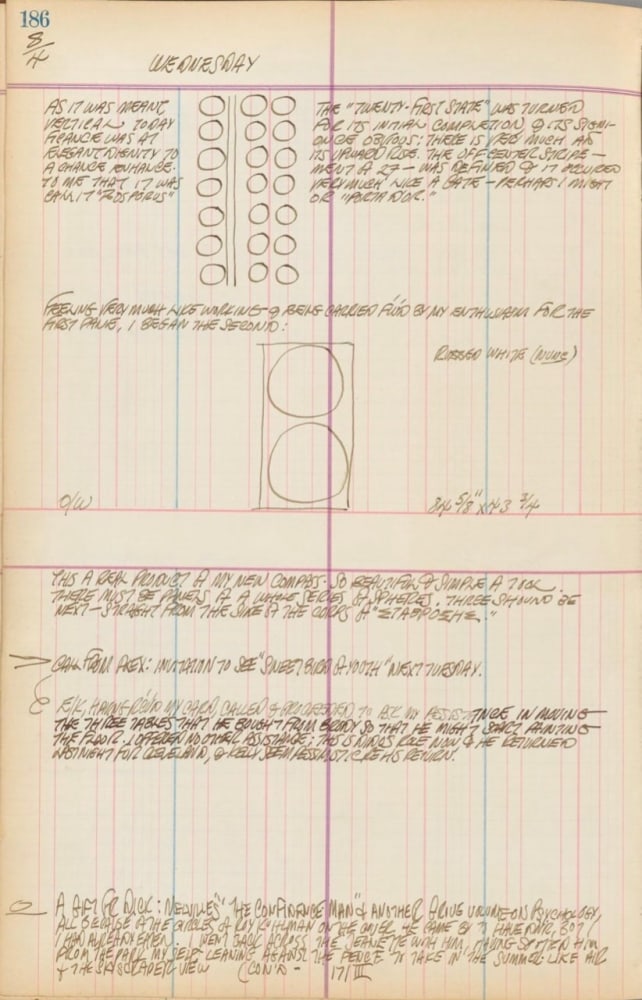 186
8/4
WEDNESDAY
AS IT WAS MEANT,
VERTICAL TODAY
AT
ELEGANT DIGNITY TO
A CHANCE ENHANCE.
TO ME THAT IT WAS
CALL IT
THE "TWENTY-FIRST STATE" WAS TURNED
FOR ITS INITIAL COMPLETION & ITS SIGNI-
OBVIOUS: THERE IS VERY MUCH AN
ITS UPWARD RISE. THE OFF CENTER STRIPE —
A 27 — WAS DEFINED & IT OCCURED
VERY MUCH LIKE A GATE — PERHAPS I MIGHT
OR "PORTA D'OR."
FEELING VERY MUCH LIKE WORKING & BEING CARRIED BY MY ENTHUSIASM FOR THE
FIRST PANEL, I BEGAN THE SECOND:
RUBBED WHITE
O/W
84 5/8" x 43 3/4
THIS A REAL PRODUCT OF MY NEW COMPASS. SO BEAUTIFUL & SIMPLE A TOOL.
THERE MUST BE PANELS OF A WHOLE SERIES OF SPHERES. THREE SHOULD BE
NEXT — STRAIGHT FROM THE THE CORPS OF
CALL FROM ALEX: INVITATION TO SEE "SWEET BIRD OF YOUTH" NEXT TUESDAY.
E/K HAVING REC'D MY CARD, CALLED & PROCEEDED TO ASK MY ASSISTANCE IN MOVING
THE THREE TABLES THAT HE BOUGHT FROM BRODY SO THAT HE MIGHT START PAINTING
THE FLOOR. I OFFERED NO OTHER ASSISTANCE; THIS IS ROLE NOW & HE RETURNED
LAST NIGHT FOR CLEVELAND, & KELLY SEEMS HIS RETURN.
A GIFT FR DICK: MELVILLE'S "THE CONFIDENCE MAN" & ANOTHER GROVE VOLUME ON PSYCHOLOGY,
ALL BECAUSE OF THE CIRCLES OF ROY KUHLMAN ON THE COVER. HE CAME BY TO HAVE PAIR, BUT I
HAD ALREADY EATEN. I WENT BACK ACROSS THE JEANETTE WITH HIM, HAVING SPOTTED HIM
FROM THE PARK MY SELF LEANING AGAINST THE FENCE TO TAKE IN THE SUMMER-LIKE AIR
& THE SKYSCRAPER VIEW (CON'D — 17/III